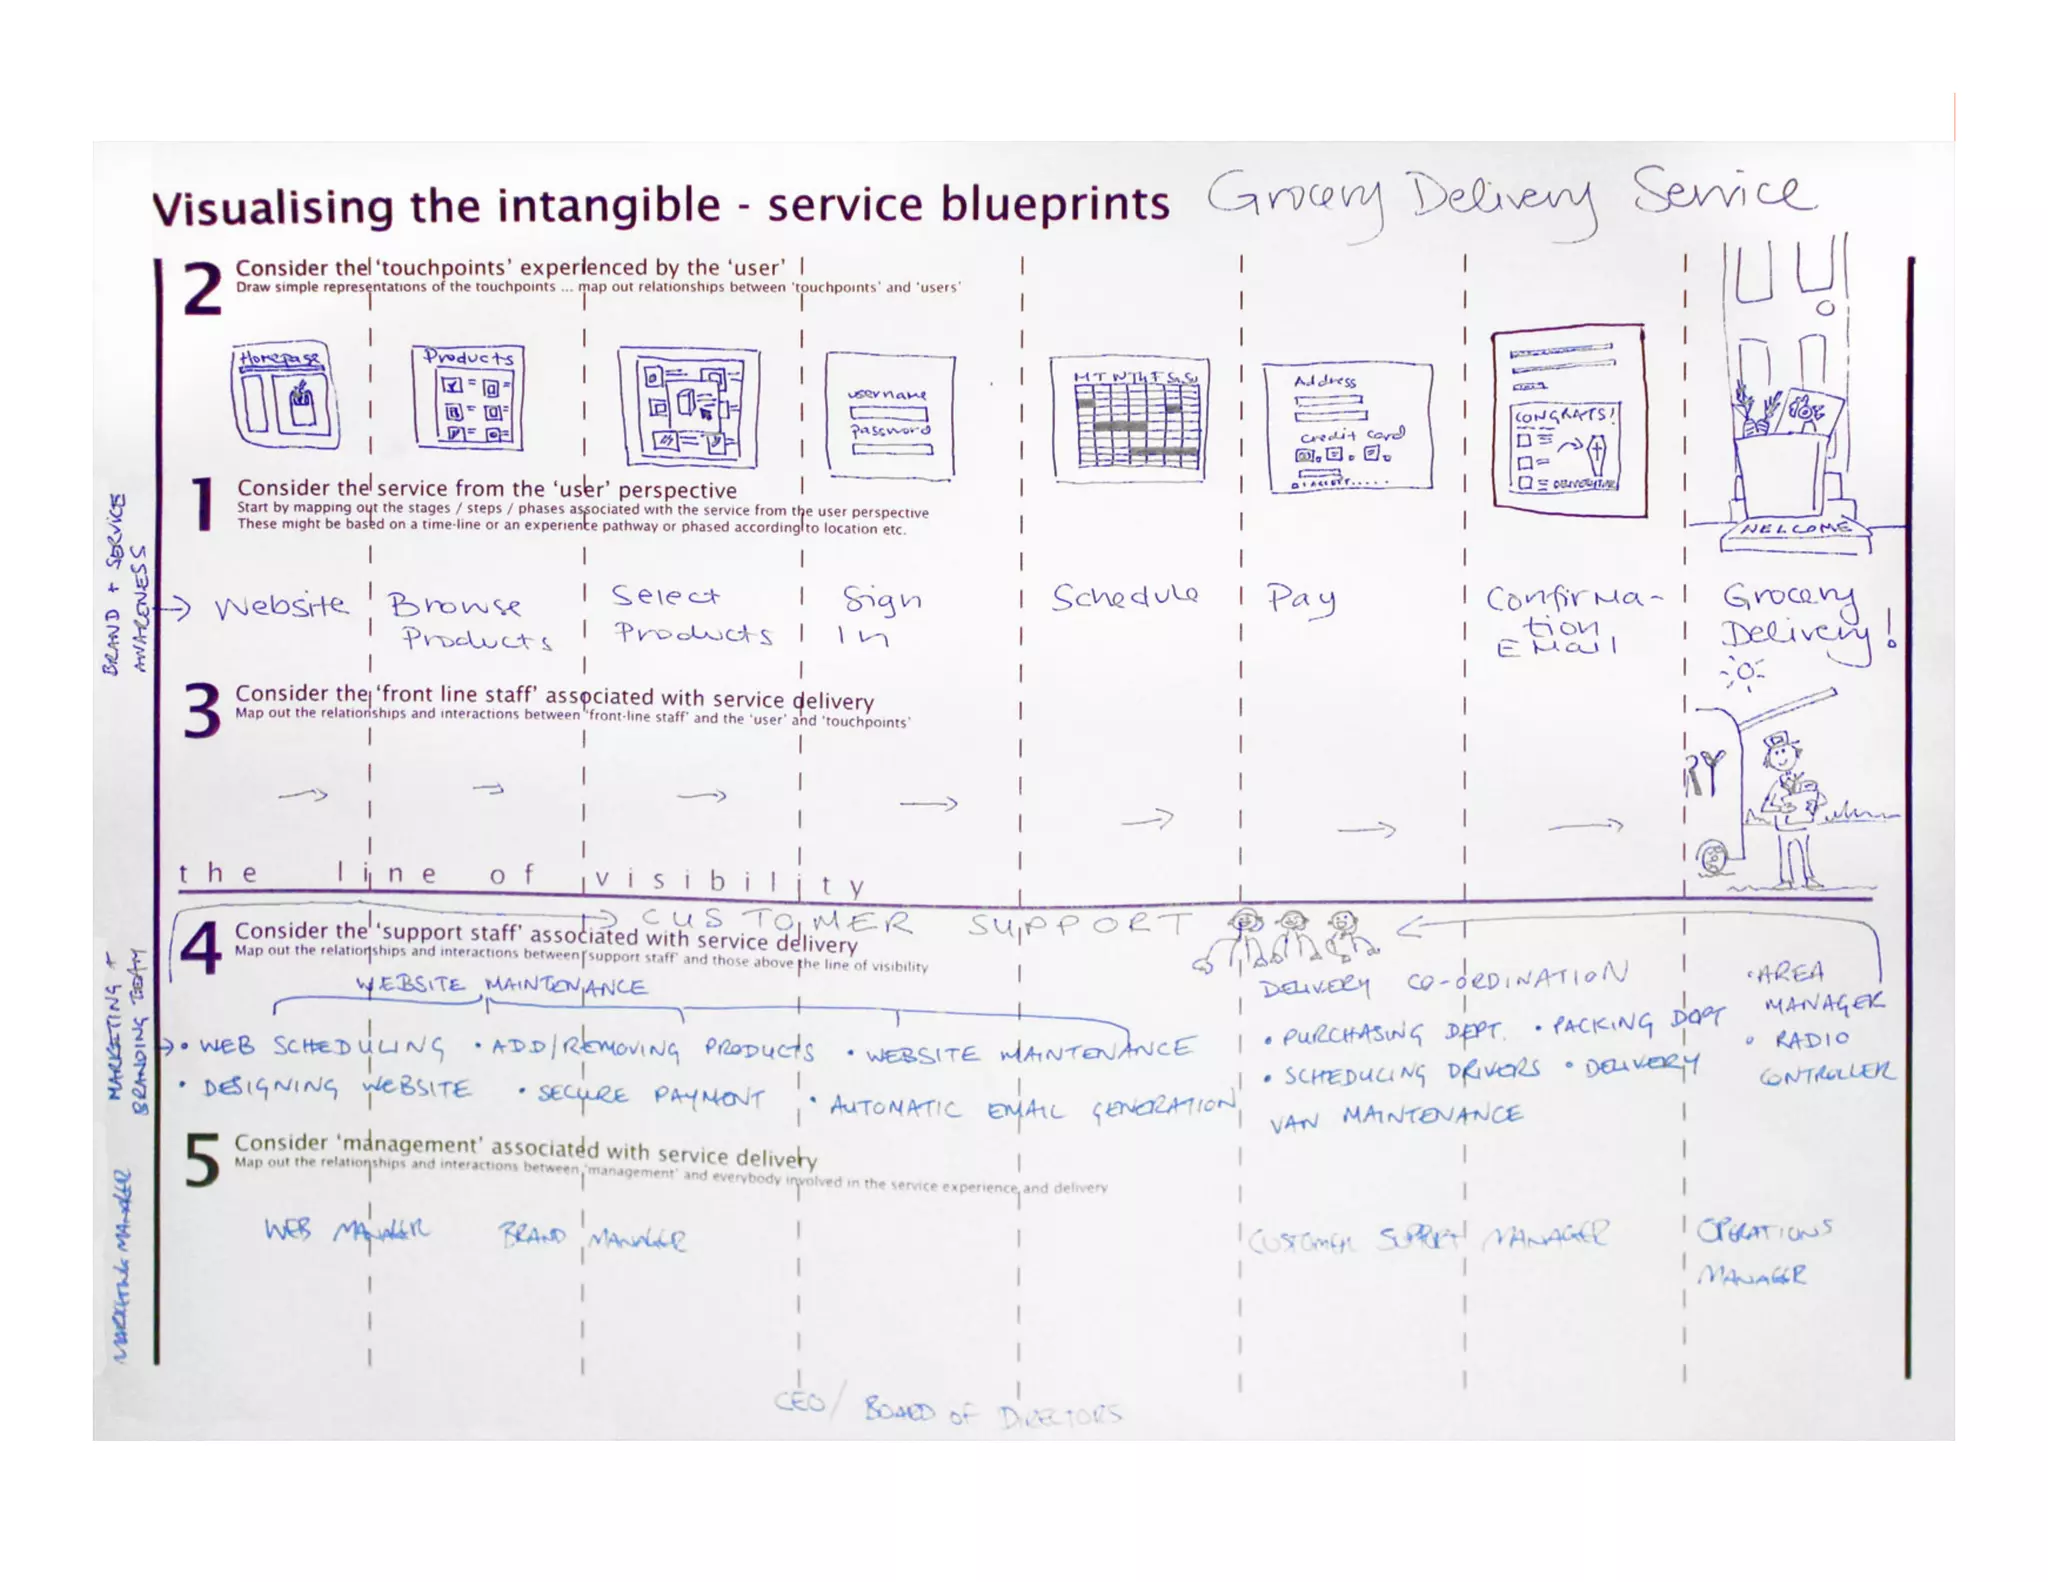 Visualising the intangible - service blueprints Grocery Delivery Service
2 Consider the 'touchpoints' experienced by the 'user'
Draw simple representations of the touchpoints ... map out relationships between 'touchpoints' and 'users'
Homepage
Products
username
password
M T W Th F Sa Su
Address
Credit Card
CONGRATS!
WELCOME
1 Consider the service from the 'user' perspective
Start by mapping out the stages / steps / phases associated with the service from the user perspective
These might be based on a time-line or an experience pathway or phased according to location etc.
BRAND + SERVICE
AWARENESS
→ Website
Browse
Products
Select
Products
Sign
In
Schedule
Pay
Confirma-
tion
Email
Grocery
Delivery!
3 Consider the 'front line staff' associated with service delivery
Map out the relationships and interactions between 'front-line staff' and the 'user' and 'touchpoints'
RY
the line of visibility
→ CUSTOMER SUPPORT
4 Consider the 'support staff' associated with service delivery
Map out the relationships and interactions between 'support staff' and those above the line of visibility
MARKETING +
BRANDING TEAM
WEBSITE MAINTENANCE
• WEB SCHEDULING • ADD/REMOVING PRODUCTS • WEBSITE MAINTENANCE
• DESIGNING WEBSITE • SECURE PAYMENT • AUTOMATIC EMAIL GENERATION
DELIVERY CO-ORDINATION
• PURCHASING DEPT. • PACKING DEPT
• SCHEDULING DRIVERS • DELIVERY
VAN MAINTENANCE
• AREA
MANAGER
• RADIO
CONTROLLER
5 Consider 'management' associated with service delivery
Map out the relationships and interactions between 'management' and everybody involved in the service experience and delivery
MARKETING MANAGER
WEB MANAGER
BRAND MANAGER
CUSTOMER SUPPORT MANAGER
OPERATIONS
MANAGER
CEO/ BOARD OF DIRECTORS